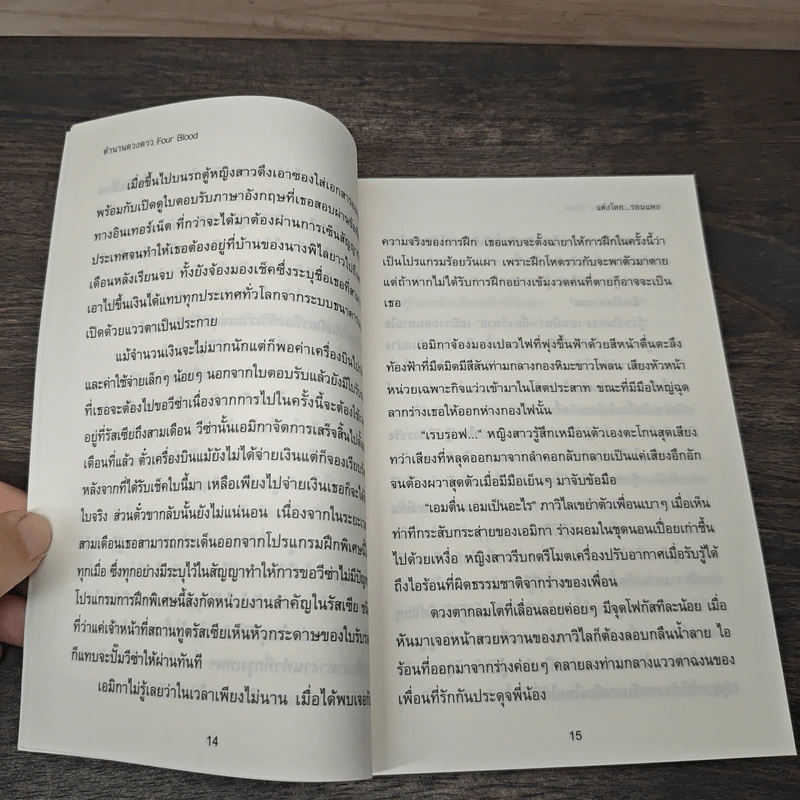 ตำนานดวงดาว Four Blood
เมื่อขึ้นไปบนรถตู้หญิงสาวดึงเอาซองใส่เอกสาร
พร้อมกับเปิดดูใบตอบรับภาษาอังกฤษที่เธอสอบผ่าน
ทางอินเทอร์เน็ต ที่กว่าจะได้มาต้องผ่านการเซ็นสัญญา
ประเทศจนทำให้เธอต้องอยู่ที่บ้านของนางพิไลยาวไป
เดือนหลังเรียนจบ ทั้งยังจ้องมองเช็คซึ่งระบุชื่อเธอที่
เอาไปขึ้นเงินได้แทบทุกประเทศทั่วโลกจากระบบธนาคาร
เปิดด้วยแววตาเป็นประกาย
แม้จำนวนเงินจะไม่มากนักแต่ก็พอค่าเครื่องบินไป
และค่าใช้จ่ายเล็กๆ น้อยๆ นอกจากใบตอบรับแล้วยังมีใบรับ
ที่เธอจะต้องไปขอวีซ่าเนื่องจากการไปในครั้งนี้จะต้องใช้
อยู่ที่รัสเซียถึงสามเดือน วีซ่านั้นเอมิกาจัดการเสร็จสิ้นไปตั้ง
เดือนที่แล้ว ตั๋วเครื่องบินแม้ยังไม่ได้จ่ายเงินแต่ก็จองเรียบร้อย
หลังจากที่ได้รับเช็คใบนี้มา เหลือเพียงไปจ่ายเงินเธอก็จะได้
ใบจริง ส่วนตั๋วขากลับนั้นยังไม่แน่นอน เนื่องจากในระยะเวลา
สามเดือนเธอสามารถกระเด็นออกจากโปรแกรมฝึกพิเศษนี้
ทุกเมื่อ ซึ่งทุกอย่างมีระบุไว้ในสัญญาทำให้การขอวีซ่าไม่มีปัญหา
โปรแกรมการฝึกพิเศษนี้สังกัดหน่วยงานสำคัญในรัสเซีย
ที่ว่าแค่เจ้าหน้าที่สถานทูตรัสเซียเห็นหัวกระดาษของใบรับรอง
ก็แทบจะปั๊มวีซ่าให้ผ่านทันที
เอมิกาไม่รู้เลยว่าในเวลาเพียงไม่นาน เมื่อได้พบเจอกับ
14
แต่งโดย...รอมแพง
ความจริงของการฝึก เธอแทบจะตั้งฉายาให้การฝึกในครั้งนี้ว่า
เป็นโปรแกรมร้อยวันเผา เพราะฝึกโหดราวกับจะพาตัวมาตาย
แต่ถ้าหากไม่ได้รับการฝึกอย่างเข้มงวดคนที่ตายก็อาจจะเป็น
เธอ
เอมิกาจ้องมองเปลวไฟที่พุ่งขึ้นฟ้าด้วยสีหน้าตื่นตะลึง
ท้องฟ้าที่มืดมิดมีสีสันท่ามกลางกองหิมะขาวโพลน เสียงหัวหน้า
หน่วยเฉพาะกิจแว่วเข้ามาในโสตประสาท ขณะที่มีมือใหญ่ฉุด
ลากร่างเธอให้ออกห่างกองไฟนั้น
“เรบรอฟ...” หญิงสาวรู้สึกเหมือนตัวเองตะโกนสุดเสียง
ทว่าเสียงที่หลุดออกมาจากลำคอกลับกลายเป็นแค่เสียงอึกอัก
จนต้องผวาสุดตัวเมื่อมีมือเย็นๆ มาจับข้อมือ
“เอมตื่น เอมเป็นอะไร” ภาวิไลเขย่าตัวเพื่อนเบาๆ เมื่อเห็น
ท่าทีกระสับกระส่ายของเอมิกา ร่างผอมในชุดนอนเปื่อยเก่าชื้น
ไปด้วยเหงื่อ หญิงสาวรีบกดรีโมตเครื่องปรับอากาศเมื่อรับรู้ได้
ถึงไอร้อนที่ผิดธรรมชาติจากร่างของเพื่อน
ดวงตากลมโตที่เลื่อนลอยค่อยๆ มีจุดโฟกัสทีละน้อย เมื่อ
หันมาเจอหน้าสวยหวานของภาวิไลก็ต้องลอบกลืนน้ำลาย ไอ
ร้อนที่ออกมาจากร่างค่อยๆ คลายลงท่ามกลางแววตาฉงนของ
เพื่อนที่รักกันประดุจพี่น้อง
15